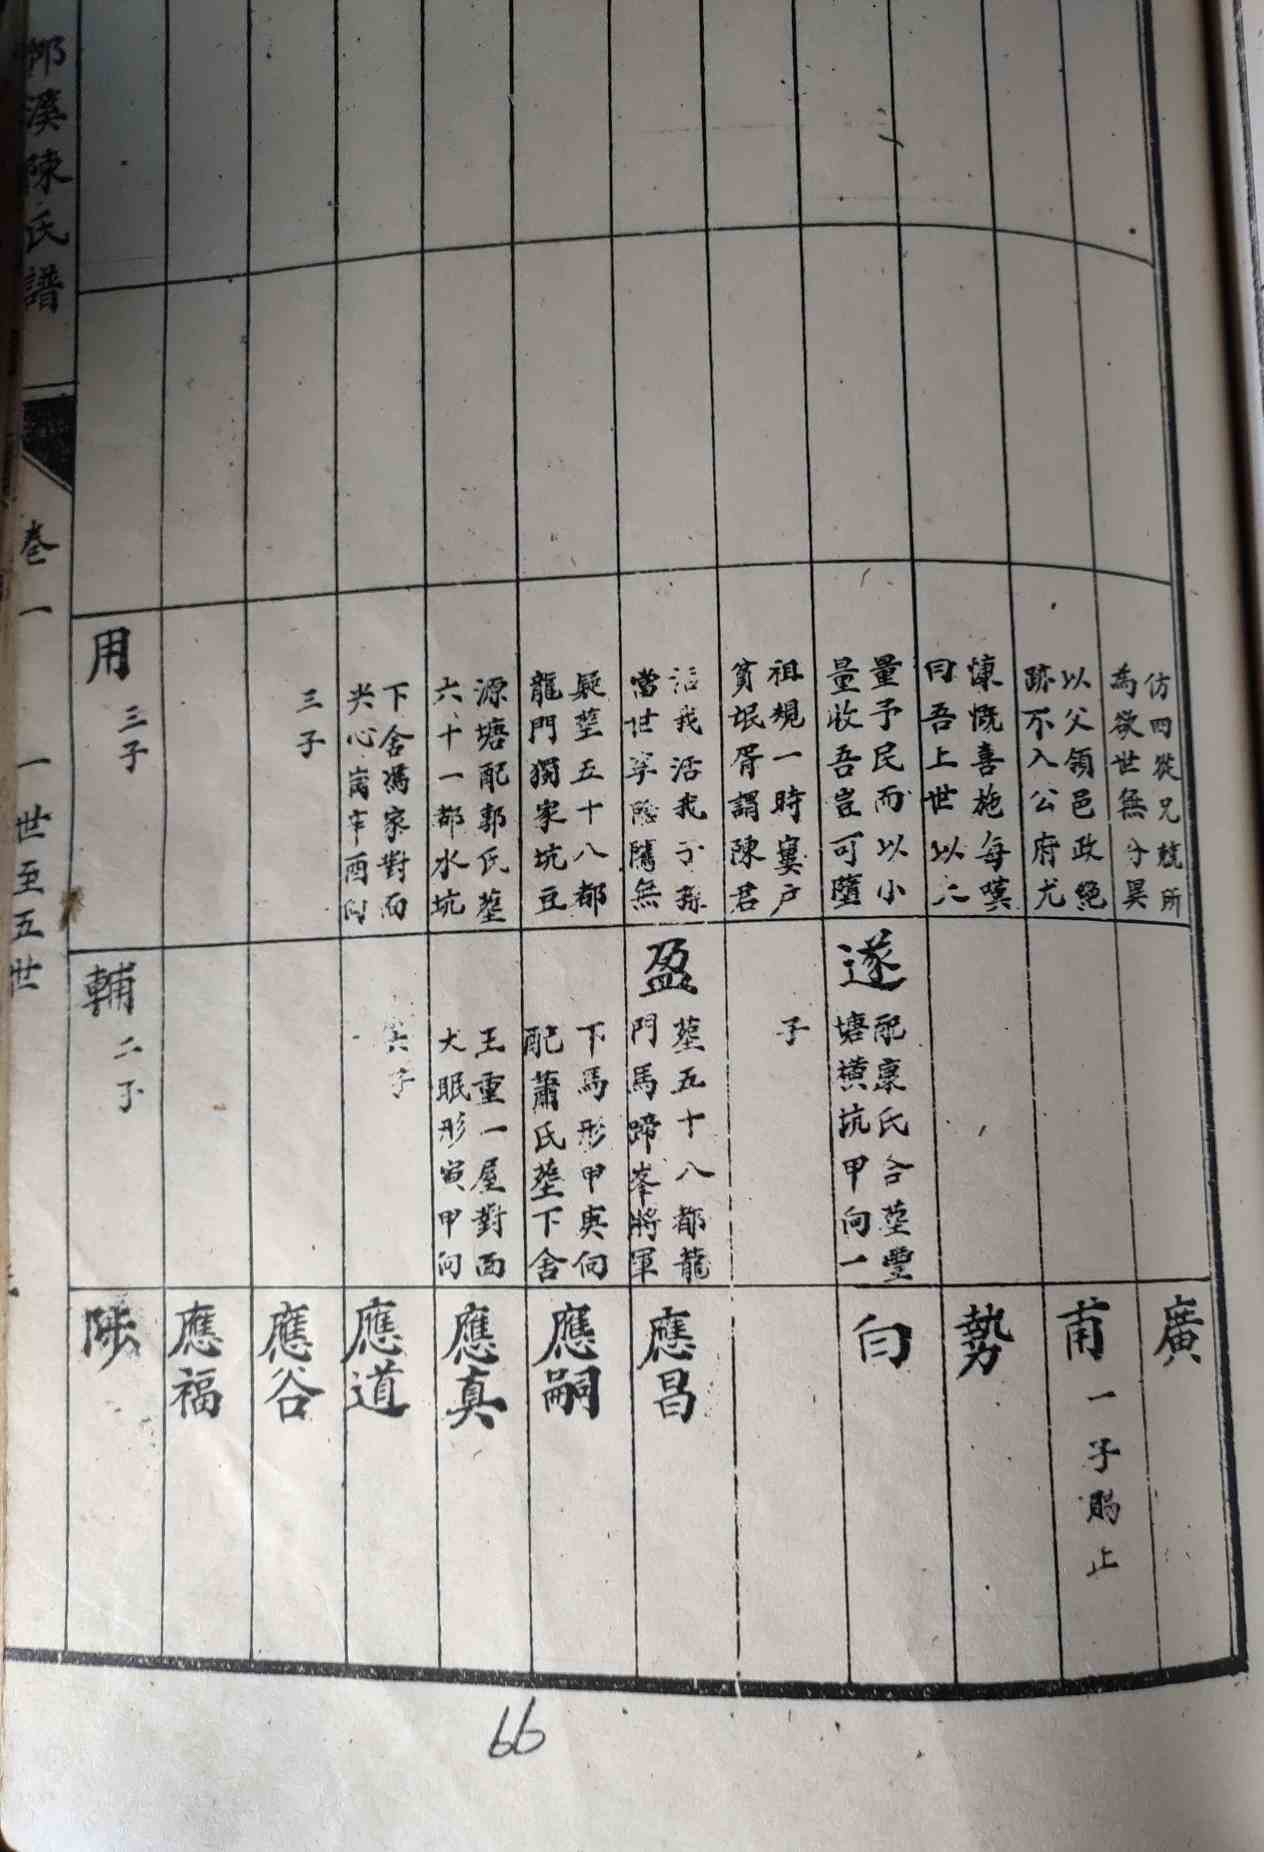 仿四從兄兢所
為欲世無分異
以父領邑政絕
跡不入公府尤
慷慨喜施每嘆
曰吾上世以大
量予民而以小
量收吾豈可墮
祖規一時窶戶
貧氓胥謂陳君
活我活我子孫
當世享陰隲無
疑塟五十八都
龍門獨家坑豆
源塘配郭氏塟
六十一都水坑
下舍馮家對面
尖心崗辛酉向
三子
用
三子
遂
配康氏合塟豐
塘横坑甲向一
子
盈
塟五十八都龍
門馬蹄峯將軍
下馬形甲庚向
配蕭氏塟下舍
王重一屋對面
犬眠形寅甲向
六子
輔
二子
廣
甫
一子賜止
勢
白
應昌
應嗣
應真
應道
應谷
應福
陟
溪陳氏譜
卷一
一世至五世
66